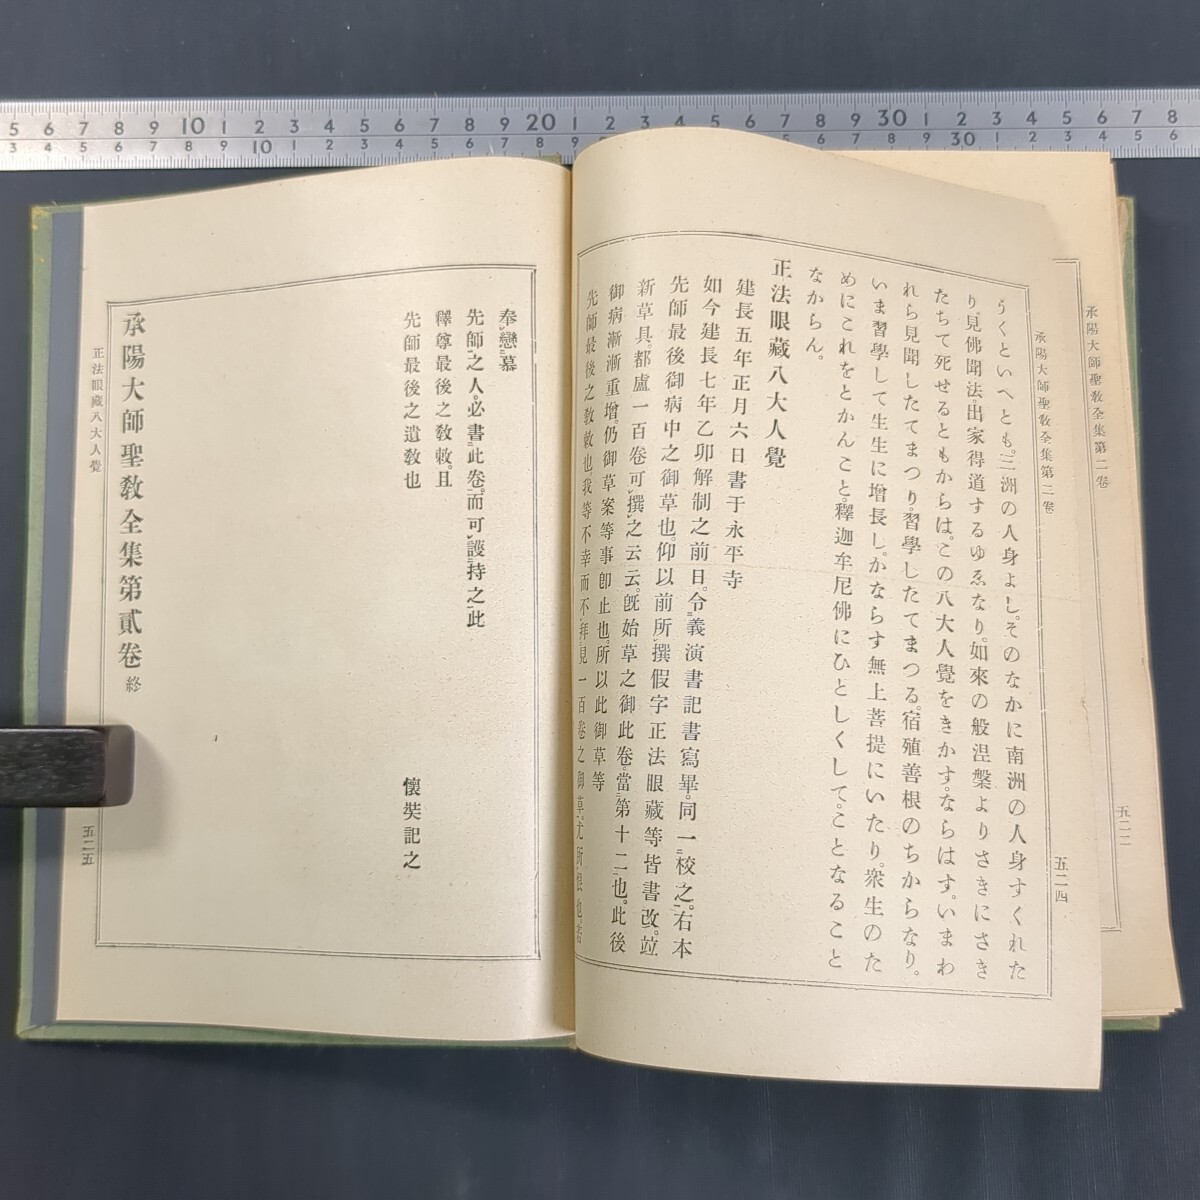 承陽大師聖敎全集第二卷
五二二
承陽大師聖敎全集第二卷
五二四
うくといへとも。三洲の人身よし。そのなかに南洲の人身すくれた
り。見佛聞法。出家得道するゆゑなり。如來の般涅槃よりさきにさき
たちて死せるともからは。この八大人覺をきかす。ならはす。いまわ
れら見聞したてまつり。習學したてまつる。宿殖善根のちからなり。
いま習學して生生に增長し。かならす無上菩提にいたり。衆生のた
めにこれをとかんこと。釋迦牟尼佛にひとしくして。ことなること
なからん。
正法眼藏八大人覺
建長五年正月六日書于永平寺
如今建長七年乙卯解制之前日。令義演書記書寫畢。同一校之。右本
先師最後御病中之御草也。仰以前所撰假字正法眼藏等皆書改。竝
新草具。都盧一百卷可撰之云云。旣始草之御此卷。當第十二也。此後
御病漸漸重增。仍御草案等事卽止也。所以此御草等
先師最後之敎敕也。我等不幸而不拜見一百卷之御草。尤所恨也。若
奉戀慕
先師之人。必書此卷。而可護持之。此
釋尊最後之敎敕。且
先師最後之遺敎也
懷奘記之
承陽大師聖敎全集第貳卷 終
正法眼藏八大人覺
五二五
5 6 7 8 9 10 1 2 3 4 5 6 7 8 9 20 1 2 3 4 5 6 7 8 9 30 1 2 3 4 5 6 7 8